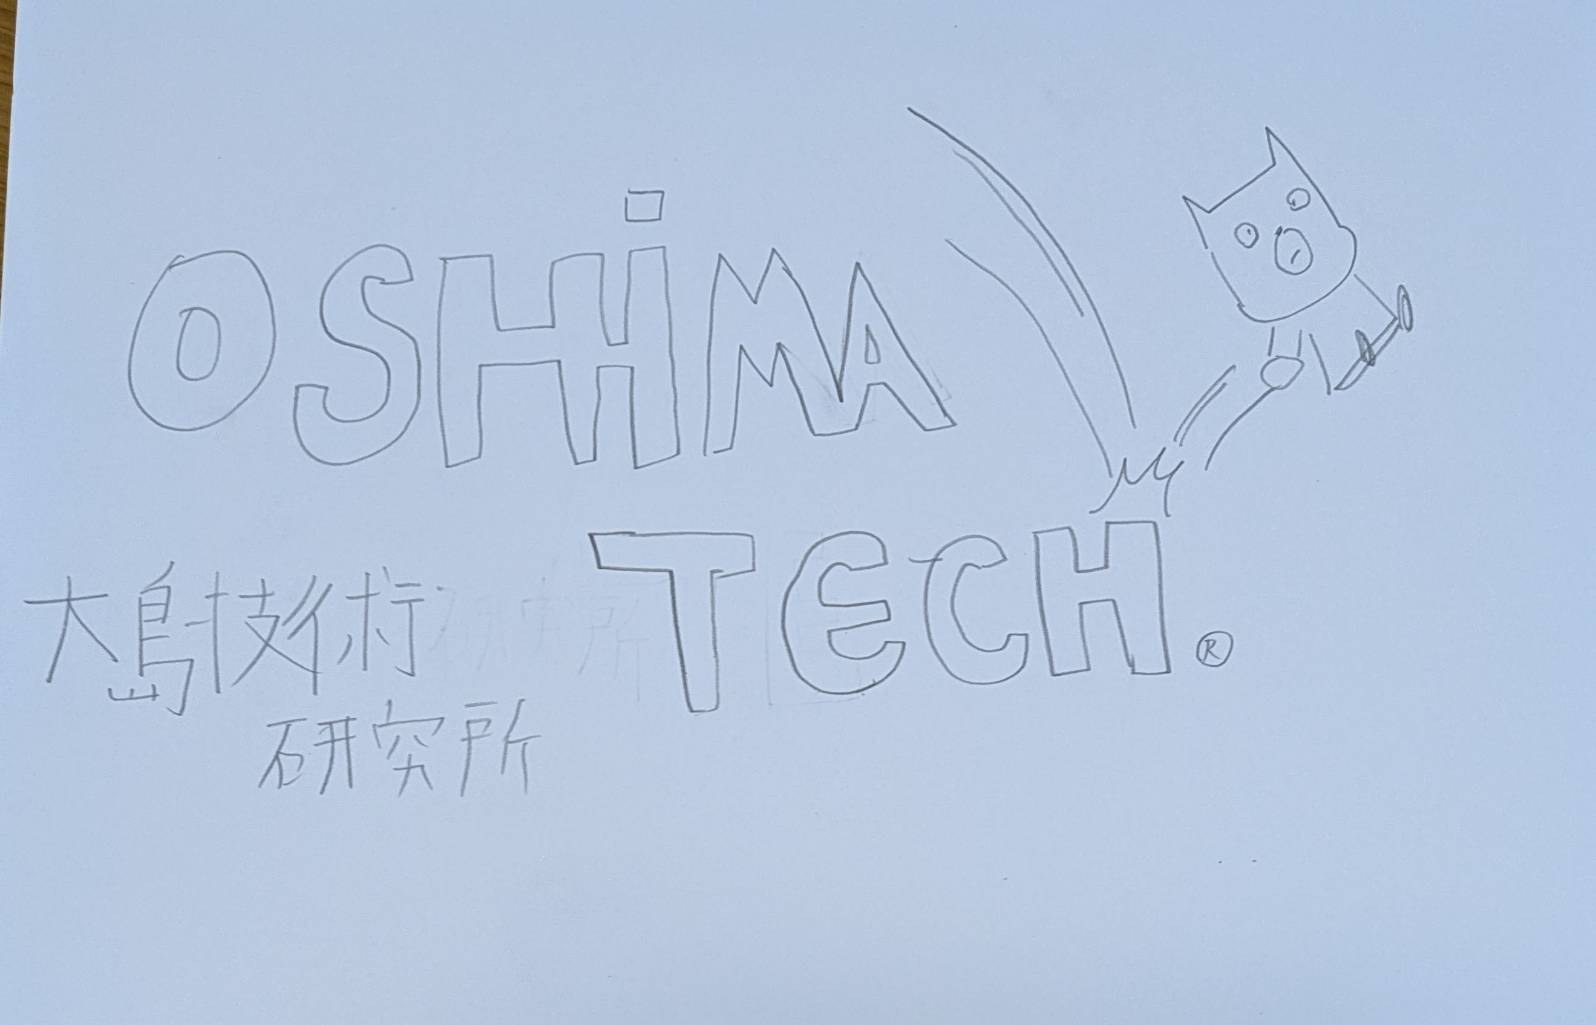 OSHiMA
TECH.®
大島技術
研究所